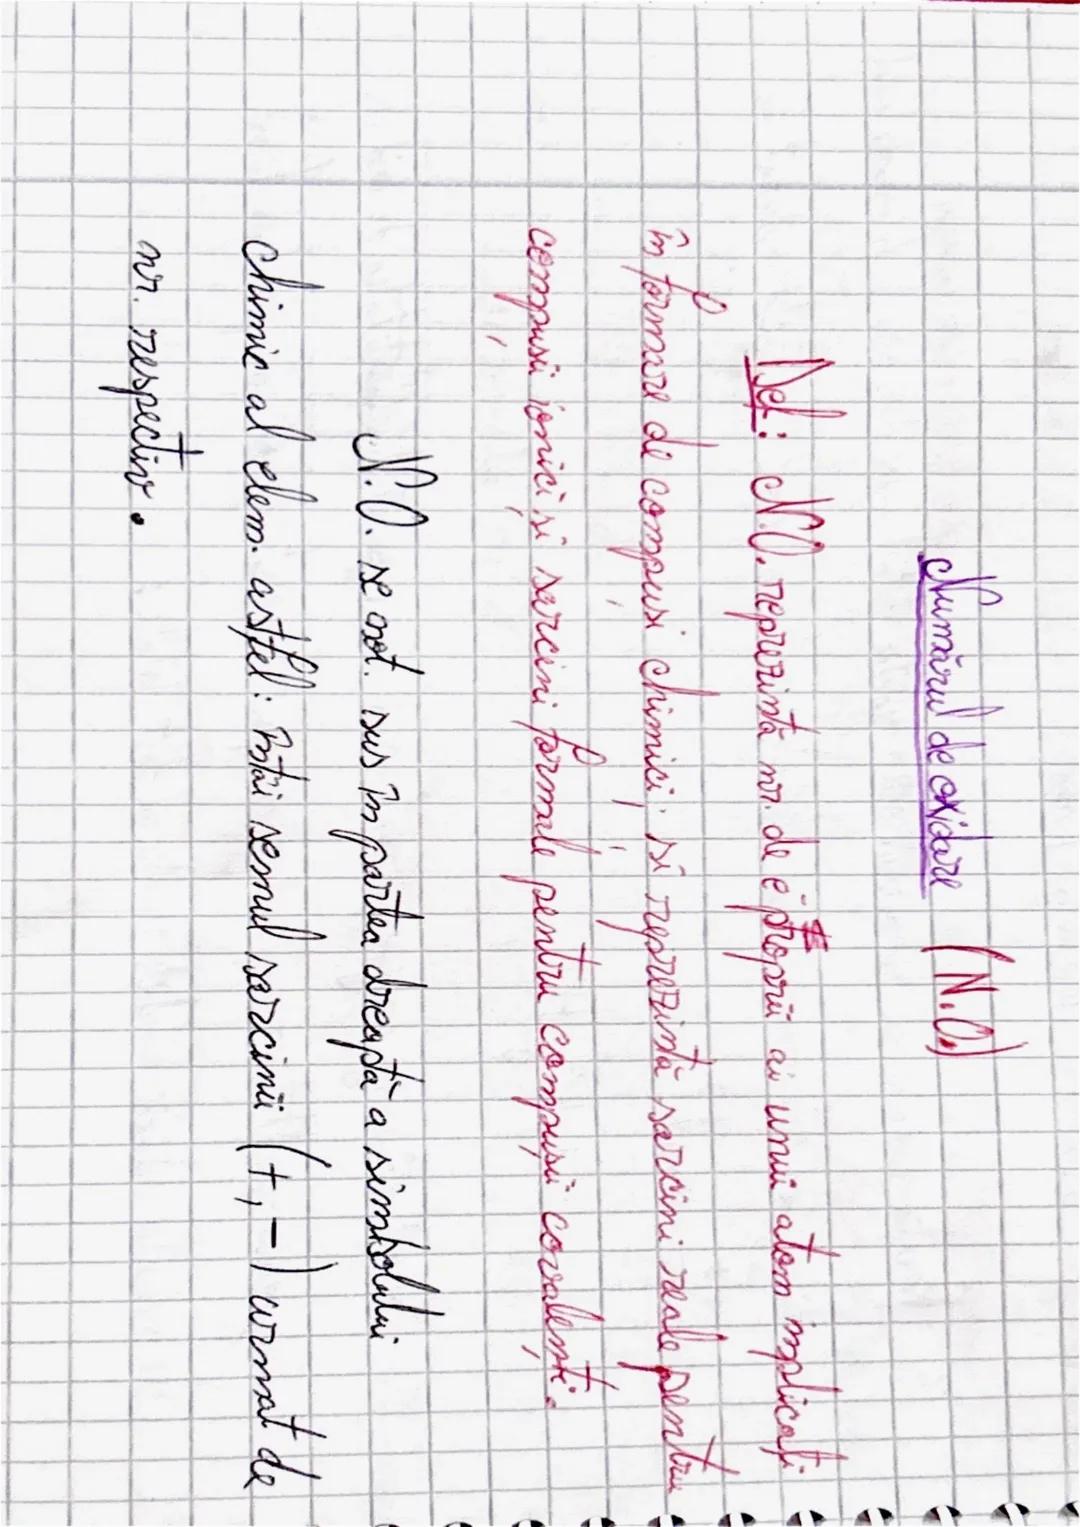 Numărul de oxidare (N.O.)
Def: N.O. reprezintă nr. de e⁻ proprii ai unui atom implicați
în formare de compuși chimici; și reprezintă sarcini reale pentru
compușii ionici și sarcini formale pentru compușii covalenți.
N.O. se not. sus în partea dreaptă a simbolului
chimic al elem. astfel: întâi semnul sarcinii (+, -) urmat de
nr. respectiv.